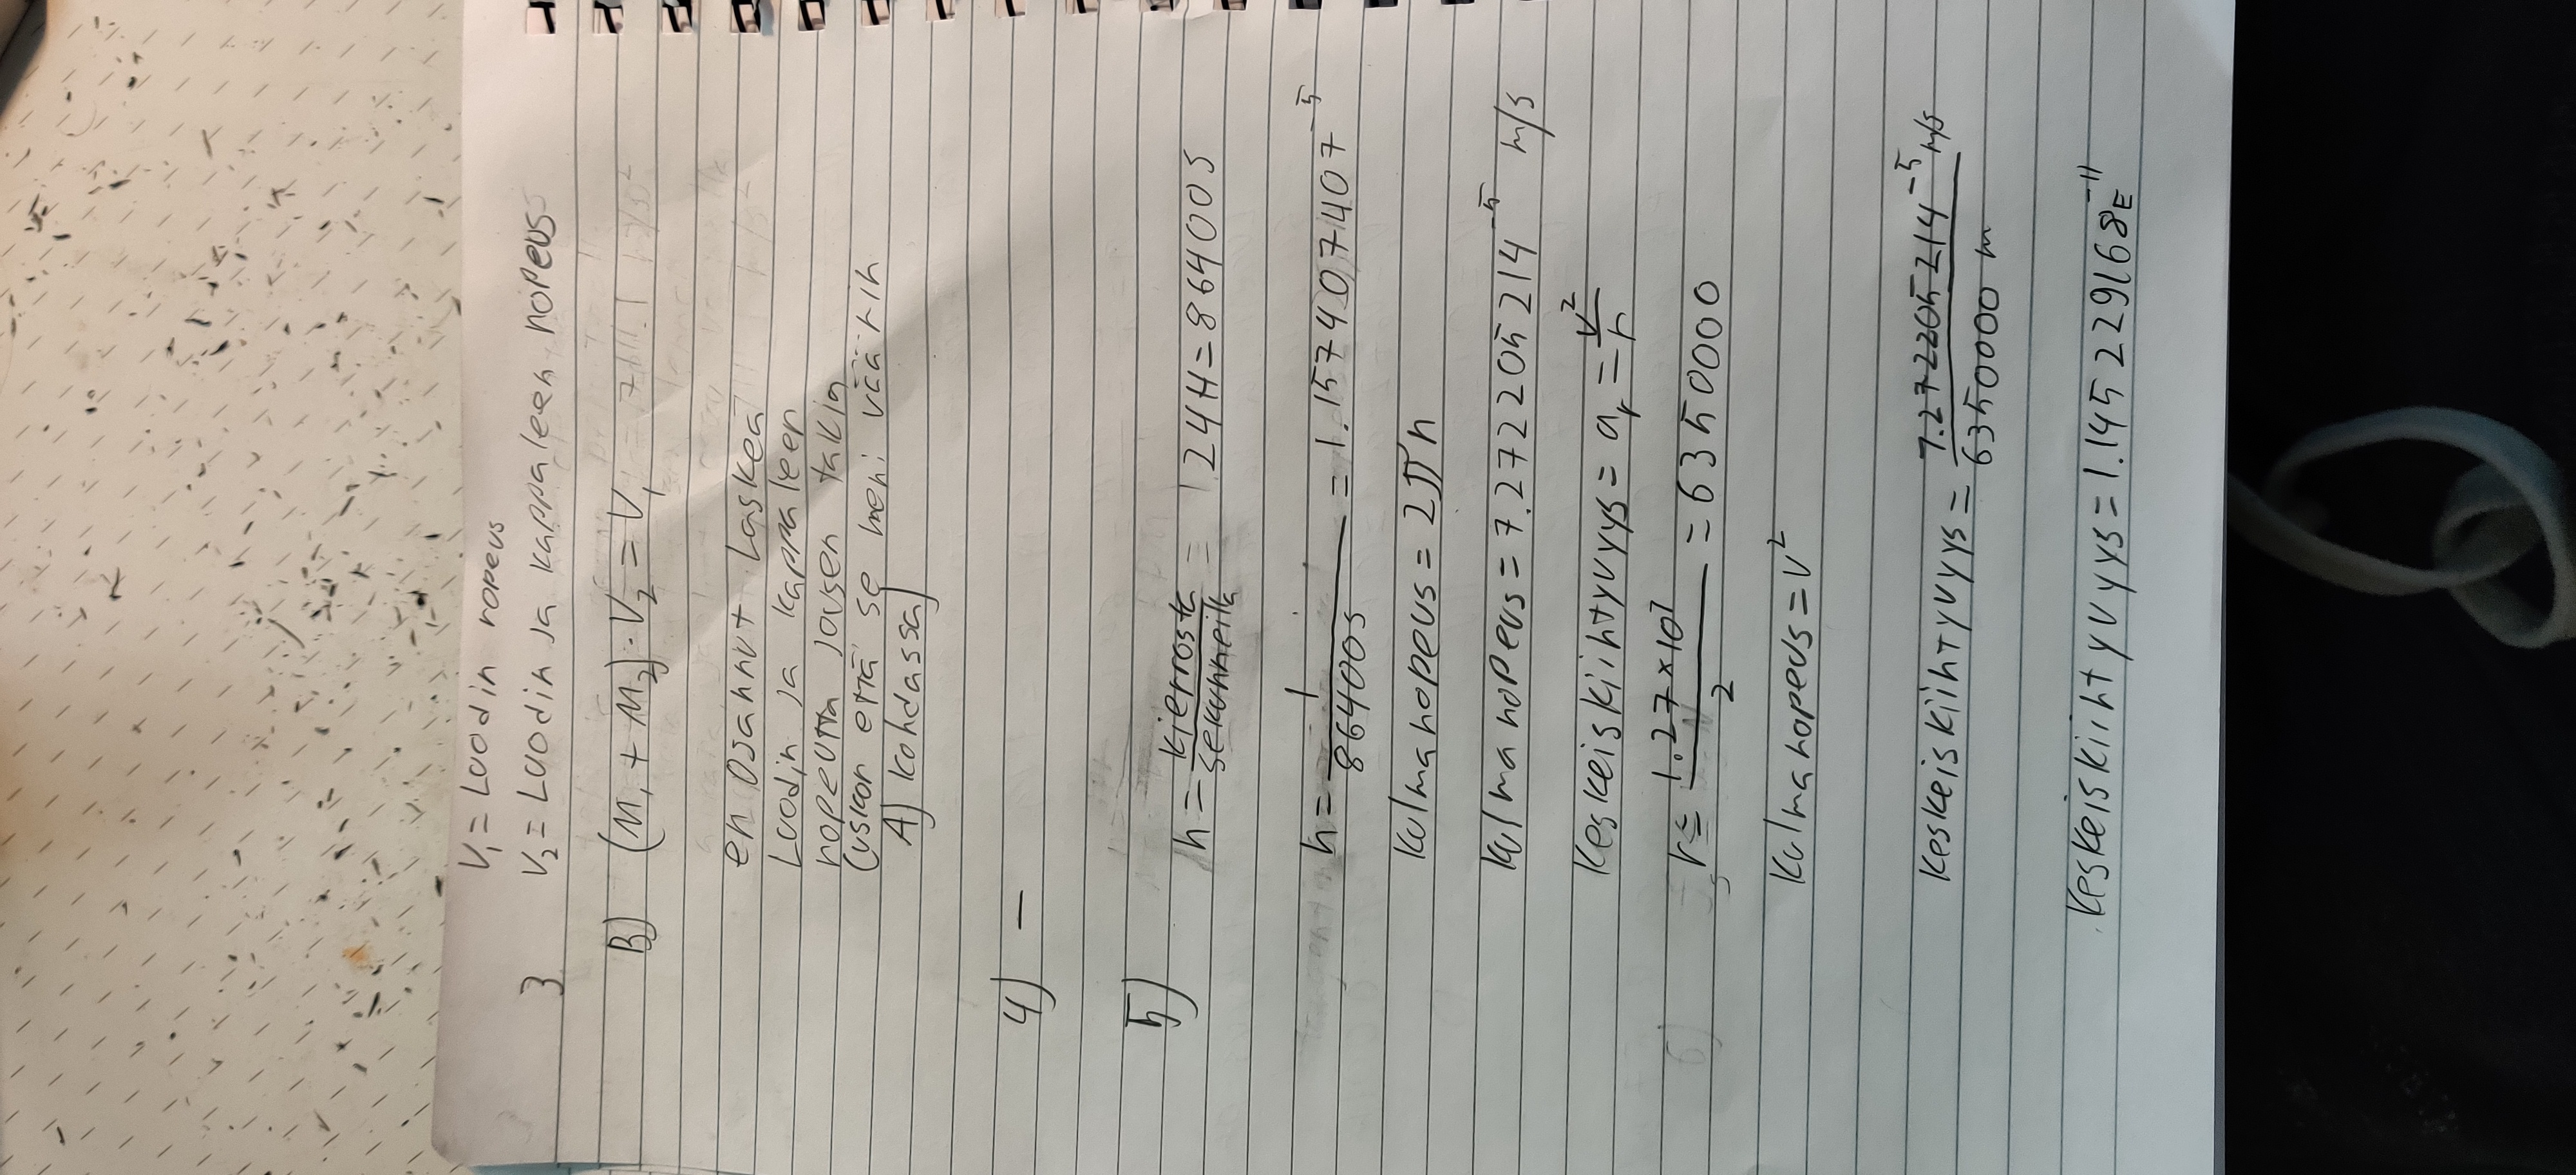 V₁ = Luodin nopeus
3 V₂ = Luodin ja kappaleen nopeus
B) (M₁ + M₂) · V₂ = V₁
en osannut Laskea
Luodin ja kappaleen
nopeutta jousen takia
(uskon että se meni väärin
A) kohdassa)
4) —
5)
n = kierrosta / sekunneilla = 24H = 86400s
n = 1 / 86400s = 1.157407407⁻⁵
Kulmanopeus = 2πn
Kulmanopeus = 7.272205214⁻⁵ m/s
Keskeiskiihtyvyys = aᵣ = v² / r
r = 1.27×10⁷ / 2 = 6350000
Kulmanopeus = v²
Keskeiskiihtyvyys = 7.272205214⁻⁵ m/s / 6350000 m
Keskeiskiihtyvyys = 1.145229168E⁻¹¹